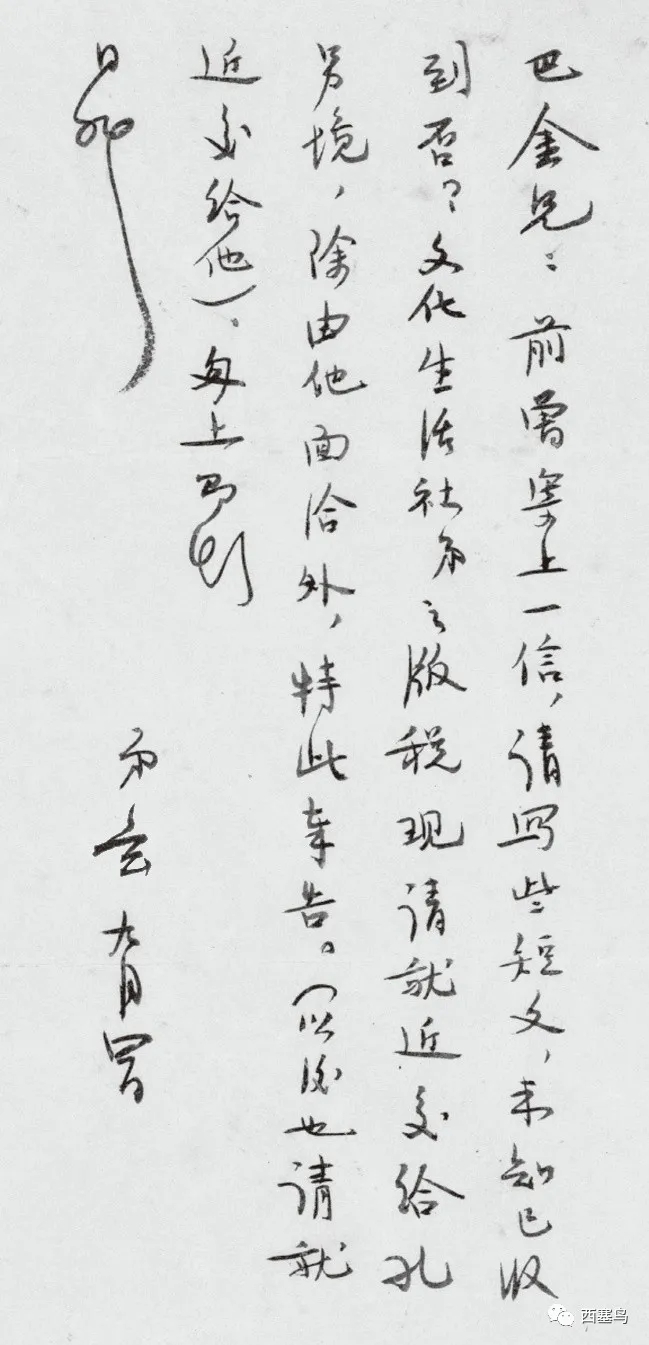 巴金兄：前曾寄上一信，请写些短文，未知已收
到否？文化生活社弟之版税现请就近交给孔
另境，除由他面洽外，特此奉告。（以后也请就
近交给他）、匆上即颂
日
弟玄 九月四日
西塞鸟